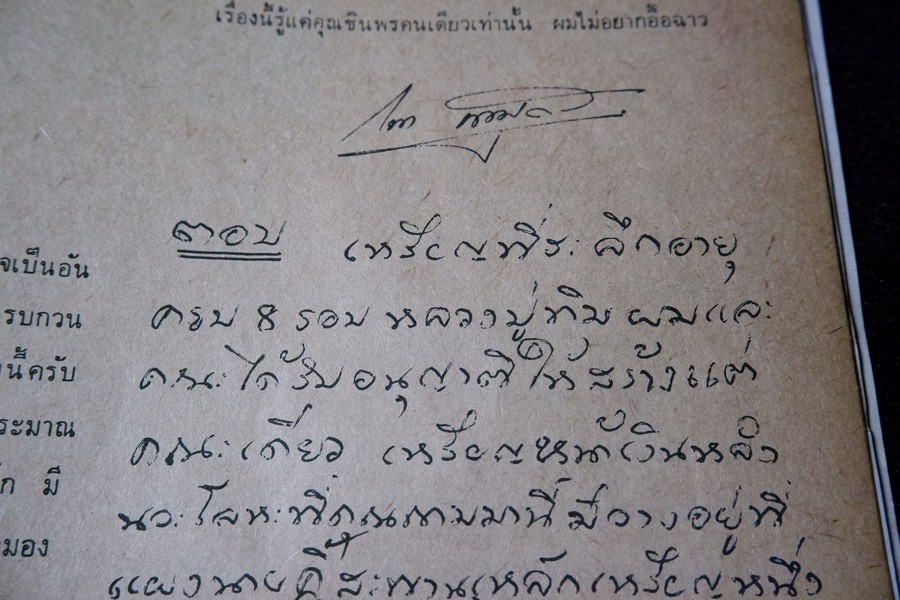 เรื่องนี้รู้แค่คุณชินพรคนเดียวเท่านั้น ผมไม่อยากอื้อฉาว
ตอบ เหรียญที่ระลึกอายุ
ครบ 8 รอบ หลวงปู่ทิม ผมและ
คณะได้รับอนุญาติให้สร้างแต่
คณะเดียว เหรียญหน้าเงินหลัง
นวะโลหะที่คุณถามมานี้ มีวางอยู่ที่
แผงนายดี๋สะพานเหล็กเหรียญหนึ่ง
จเป็นอัน
รบกวน
นี้ครับ
ระมาณ
ก มี
มอง